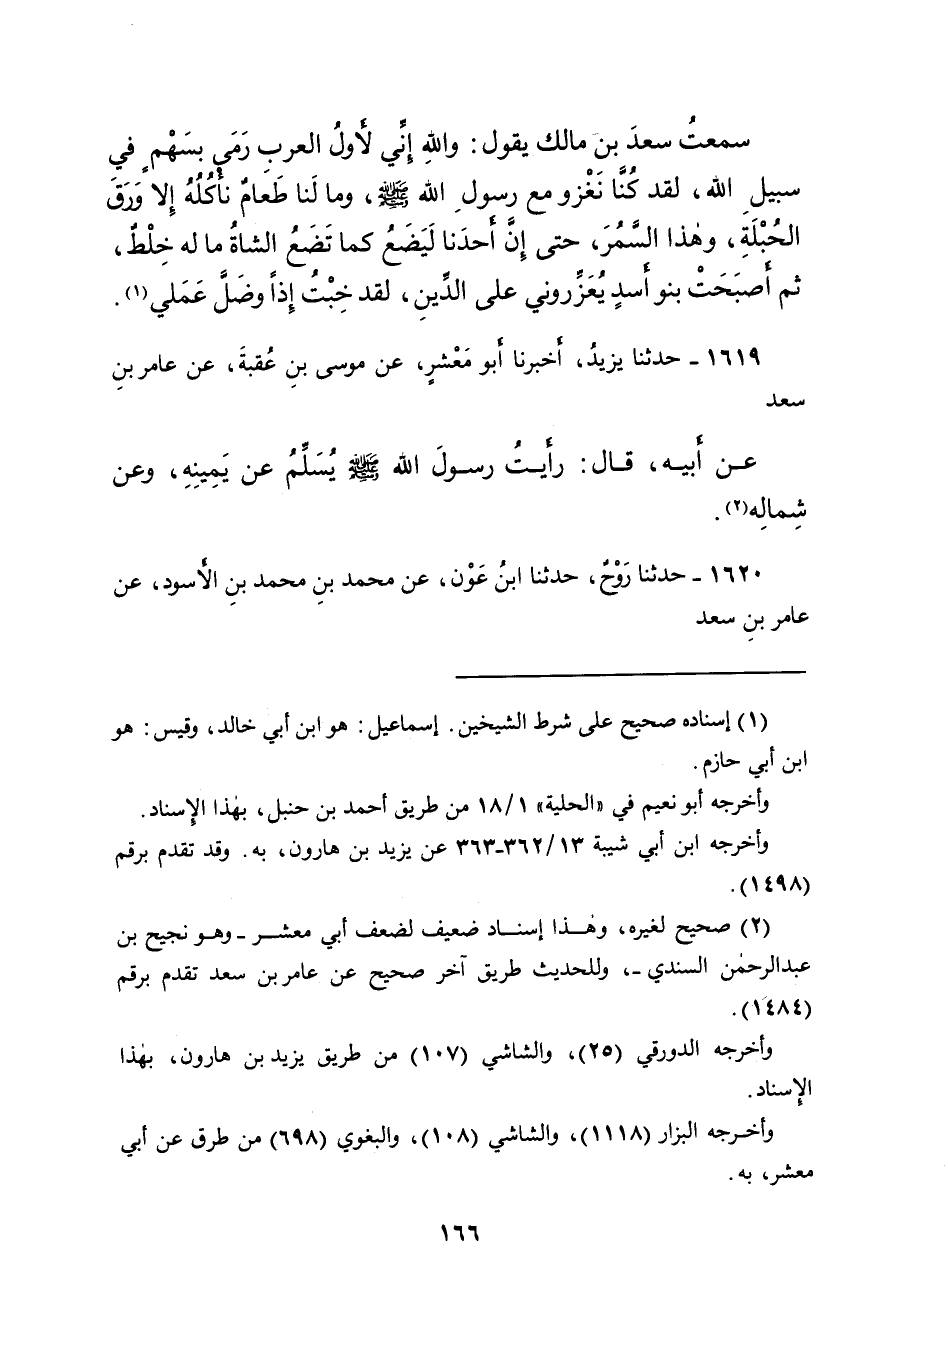 سمعتُ سعدَ بن مالك يقول: واللهِ إنِّي لأَولُ العربِ رَمَى بسَهْمٍ في
سبيلِ الله، لقد كُنَّا نَغْزو مع رسولِ الله ﷺ، وما لَنا طَعامٌ نأْكُلُهُ إلا وَرَقَ
الحُبْلَةِ، وهٰذا السَّمُرَ، حتى إنَّ أَحدَنا لَيَضَعُ كما تَضَعُ الشاةُ ما له خِلْطٌ،
ثم أَصبَحَتْ بنو أَسدٍ يُعَزِّروني على الدِّينِ، لقد خِبْتُ إذاً وضَلَّ عَمَلي(١).
١٦١٩ ـ حدثنا يزيدُ، أَخبرنا أَبو مَعْشرٍ، عن موسى بنِ عُقبةَ، عن عامر بنِ
سعد
عـن أَبيـه، قـال: رأَيـتُ رسـولَ الله ﷺ يُسَلِّمُ عن يَمِينِهِ، وعن
شِمالِه(٢).
١٦٢٠ ـ حدثنا رَوْحٌ، حدثنا ابنُ عَوْن، عن محمد بنِ محمد بنِ الأَسود، عن
عامر بنِ سعد
(١) إسناده صحيح على شرط الشيخين. إسماعيل: هو ابن أبي خالد، وقيس: هو
ابن أبي حازم.
وأخرجه أبو نعيم في «الحلية» ١٨/١ من طريق أحمد بن حنبل، بهٰذا الإِسناد.
وأخرجه ابن أبي شيبة ٣٦٢/١٣-٣٦٣ عن يزيد بن هارون، به. وقد تقدم برقم
(١٤٩٨).
(٢) صحيح لغيره، وهٰـذا إسنـاد ضعيف لضعف أبي معشـر ـ وهـو نجيح بن
عبدالرحمٰن السندي ـ، وللحديث طريق آخر صحيح عن عامر بن سعد تقدم برقم
(١٤٨٤).
وأخرجه الدورقي (٢٥)، والشاشي (١٠٧) من طريق يزيد بن هارون، بهٰذا
الإِسناد.
وأخـرجه البزار (١١١٨)، والشاشي (١٠٨)، والبغوي (٦٩٨) من طرق عن أبي
معشر، به.
١٦٦